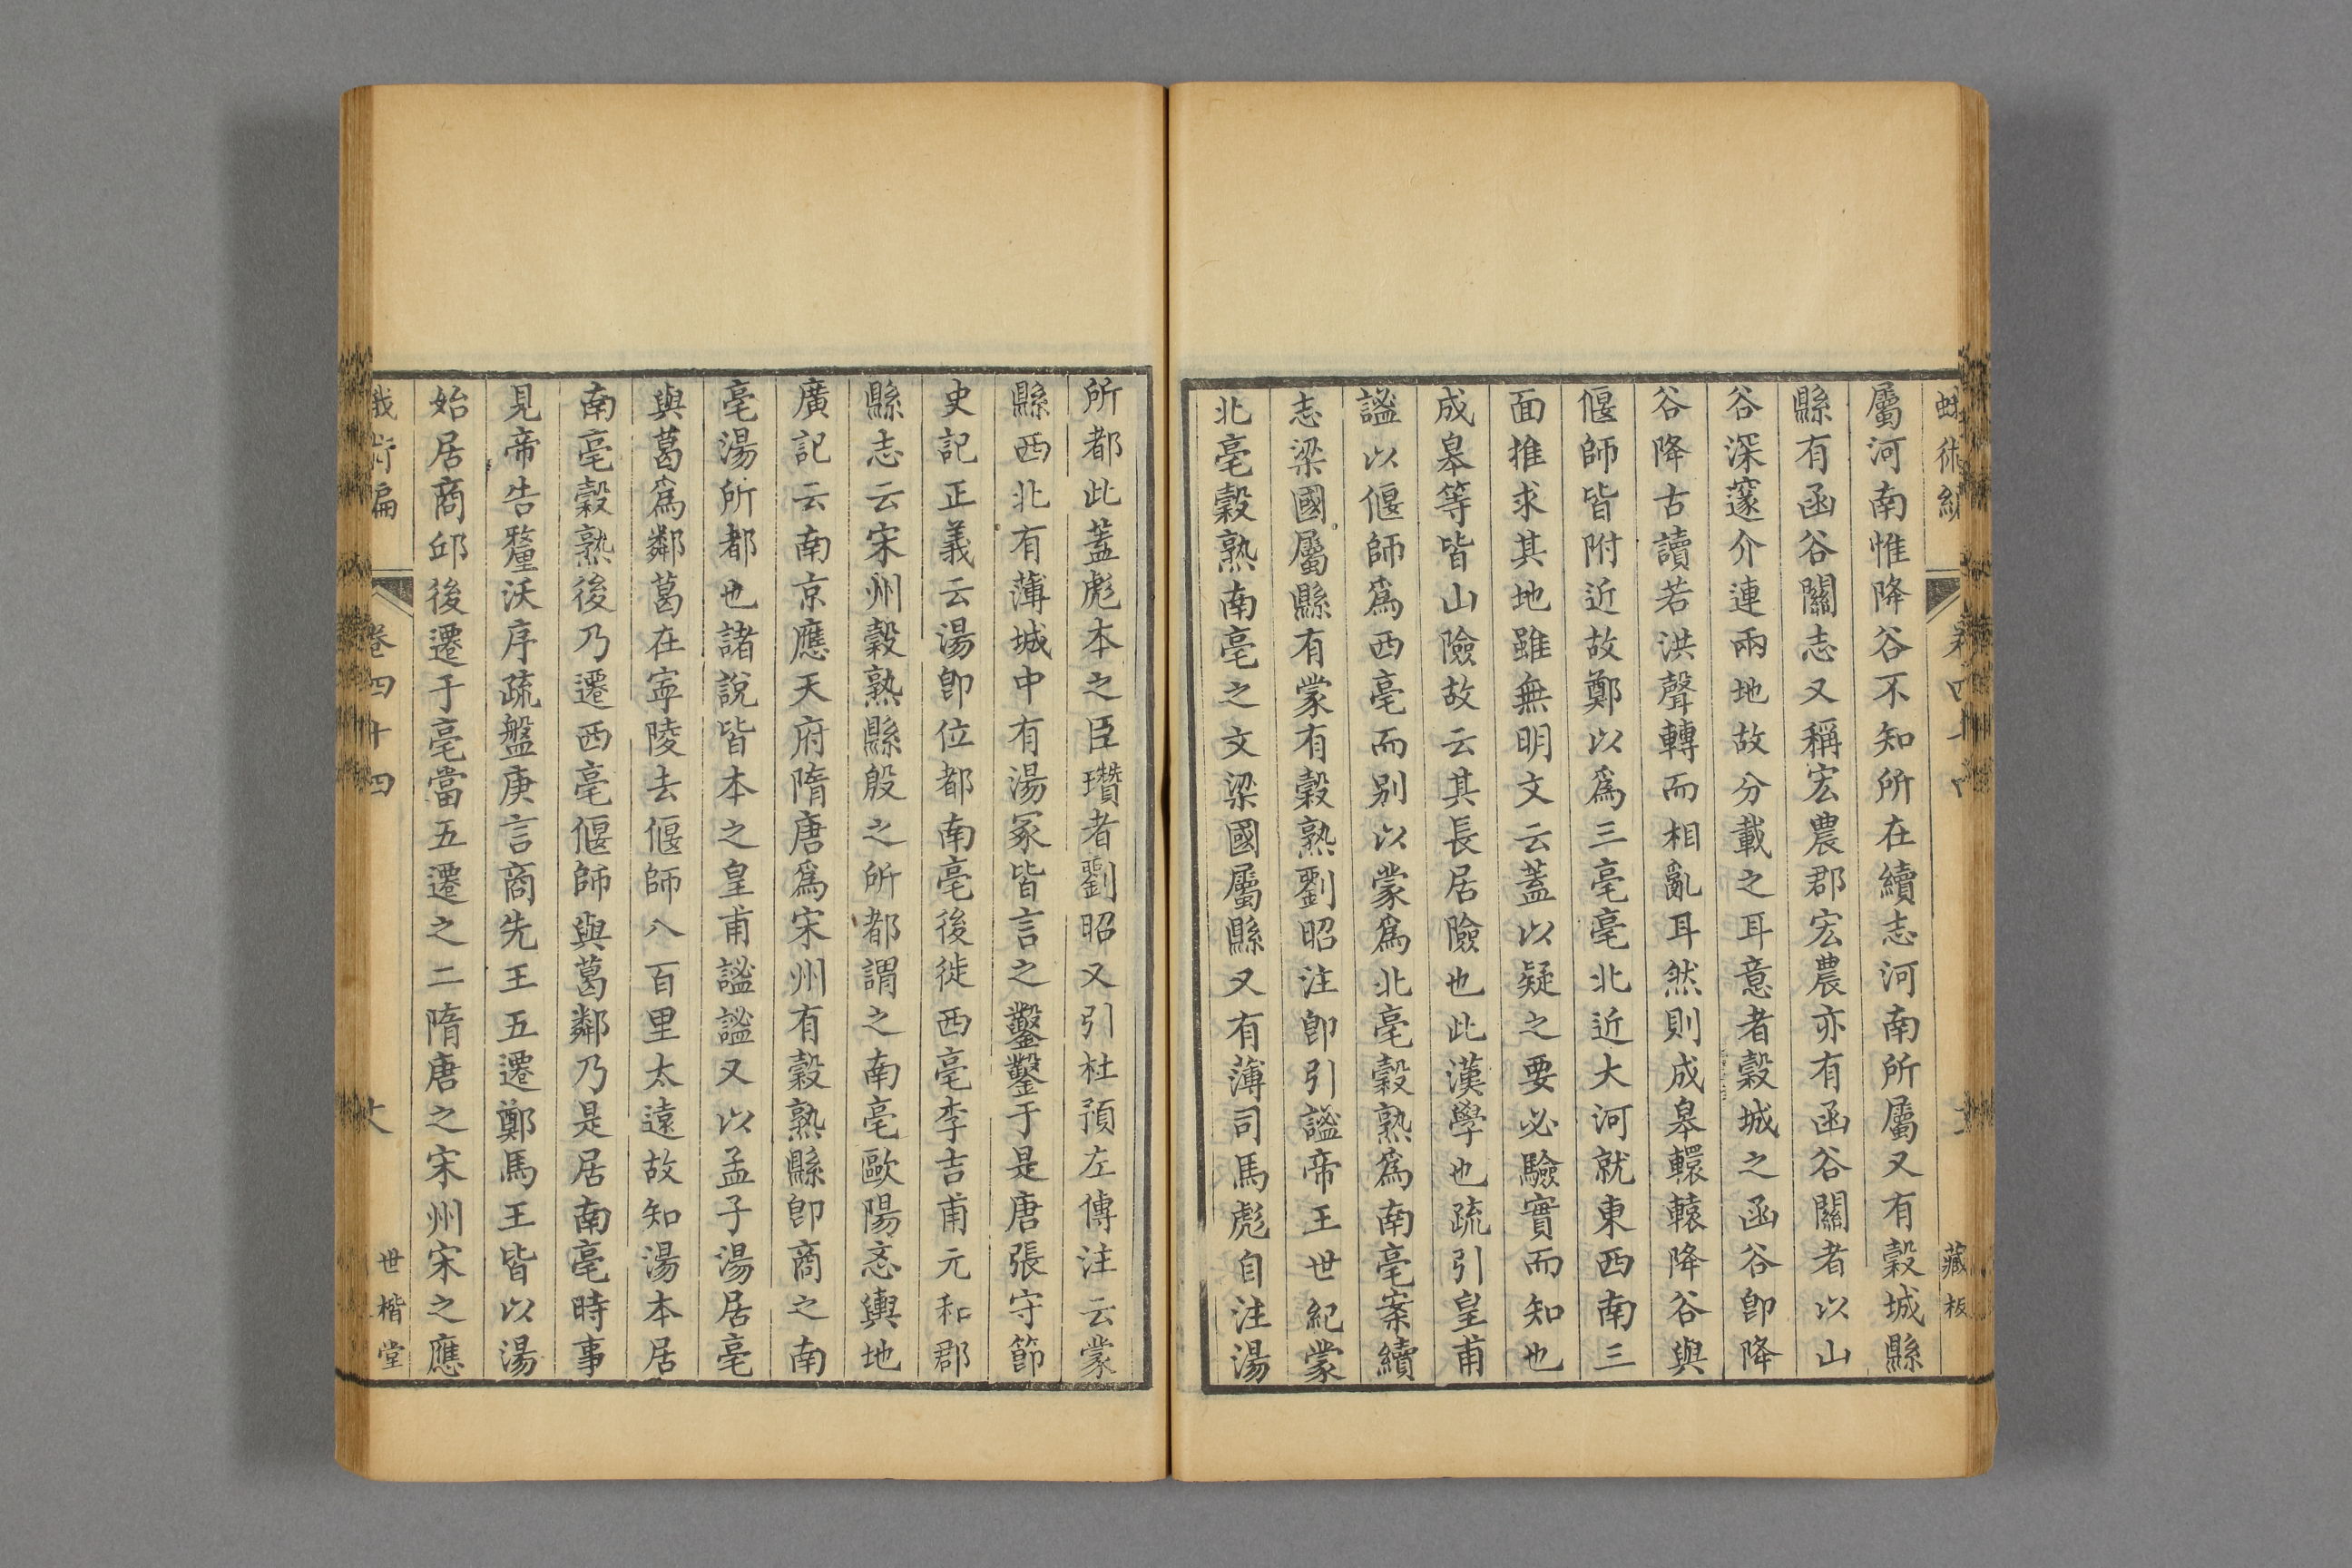 屬河南惟降谷不知所在續志河南所屬又有穀城縣
縣有函谷關志又稱宏農郡宏農亦有函谷關者以山
谷深邃介連兩地故分載之耳意者穀城之函谷卽降
谷降古讀若洪聲轉而相亂耳然則成皋轘轅降谷與
偃師皆附近故鄭以爲三亳亳北近大河就東西南三
面推求其地雖無明文云蓋以疑之要必驗實而知也
成皋等皆山險故云其長居險也此漢學也疏引皇甫
謐以偃師爲西亳而别以蒙爲北亳穀熟爲南亳案續
志梁國屬縣有蒙有穀熟劉昭注卽引謐帝王世紀蒙
北亳穀熟南亳之文梁國屬縣又有薄司馬彪自注湯
所都此蓋彪本之臣瓚者劉昭又引杜預左傳注云蒙
縣西北有薄城中有湯冢皆言之鑿鑿于是唐張守節
史記正義云湯卽位都南亳後徙西亳李吉甫元和郡
縣志云宋州穀熟縣殷之所都謂之南亳歐陽忞輿地
廣記云南京應天府隋唐爲宋州有穀熟縣卽商之南
亳湯所都也諸說皆本之皇甫謐謐又以孟子湯居亳
與葛爲鄰葛在寧陵去偃師八百里太遠故知湯本居
南亳穀熟後乃遷西亳偃師與葛鄰乃是居南亳時事
見帝告釐沃序疏盤庚言商先王五遷鄭馬王皆以湯
始居商邱後遷于亳當五遷之二隋唐之宋州宋之應
蛾術編
卷四十四
世楷堂
藏板